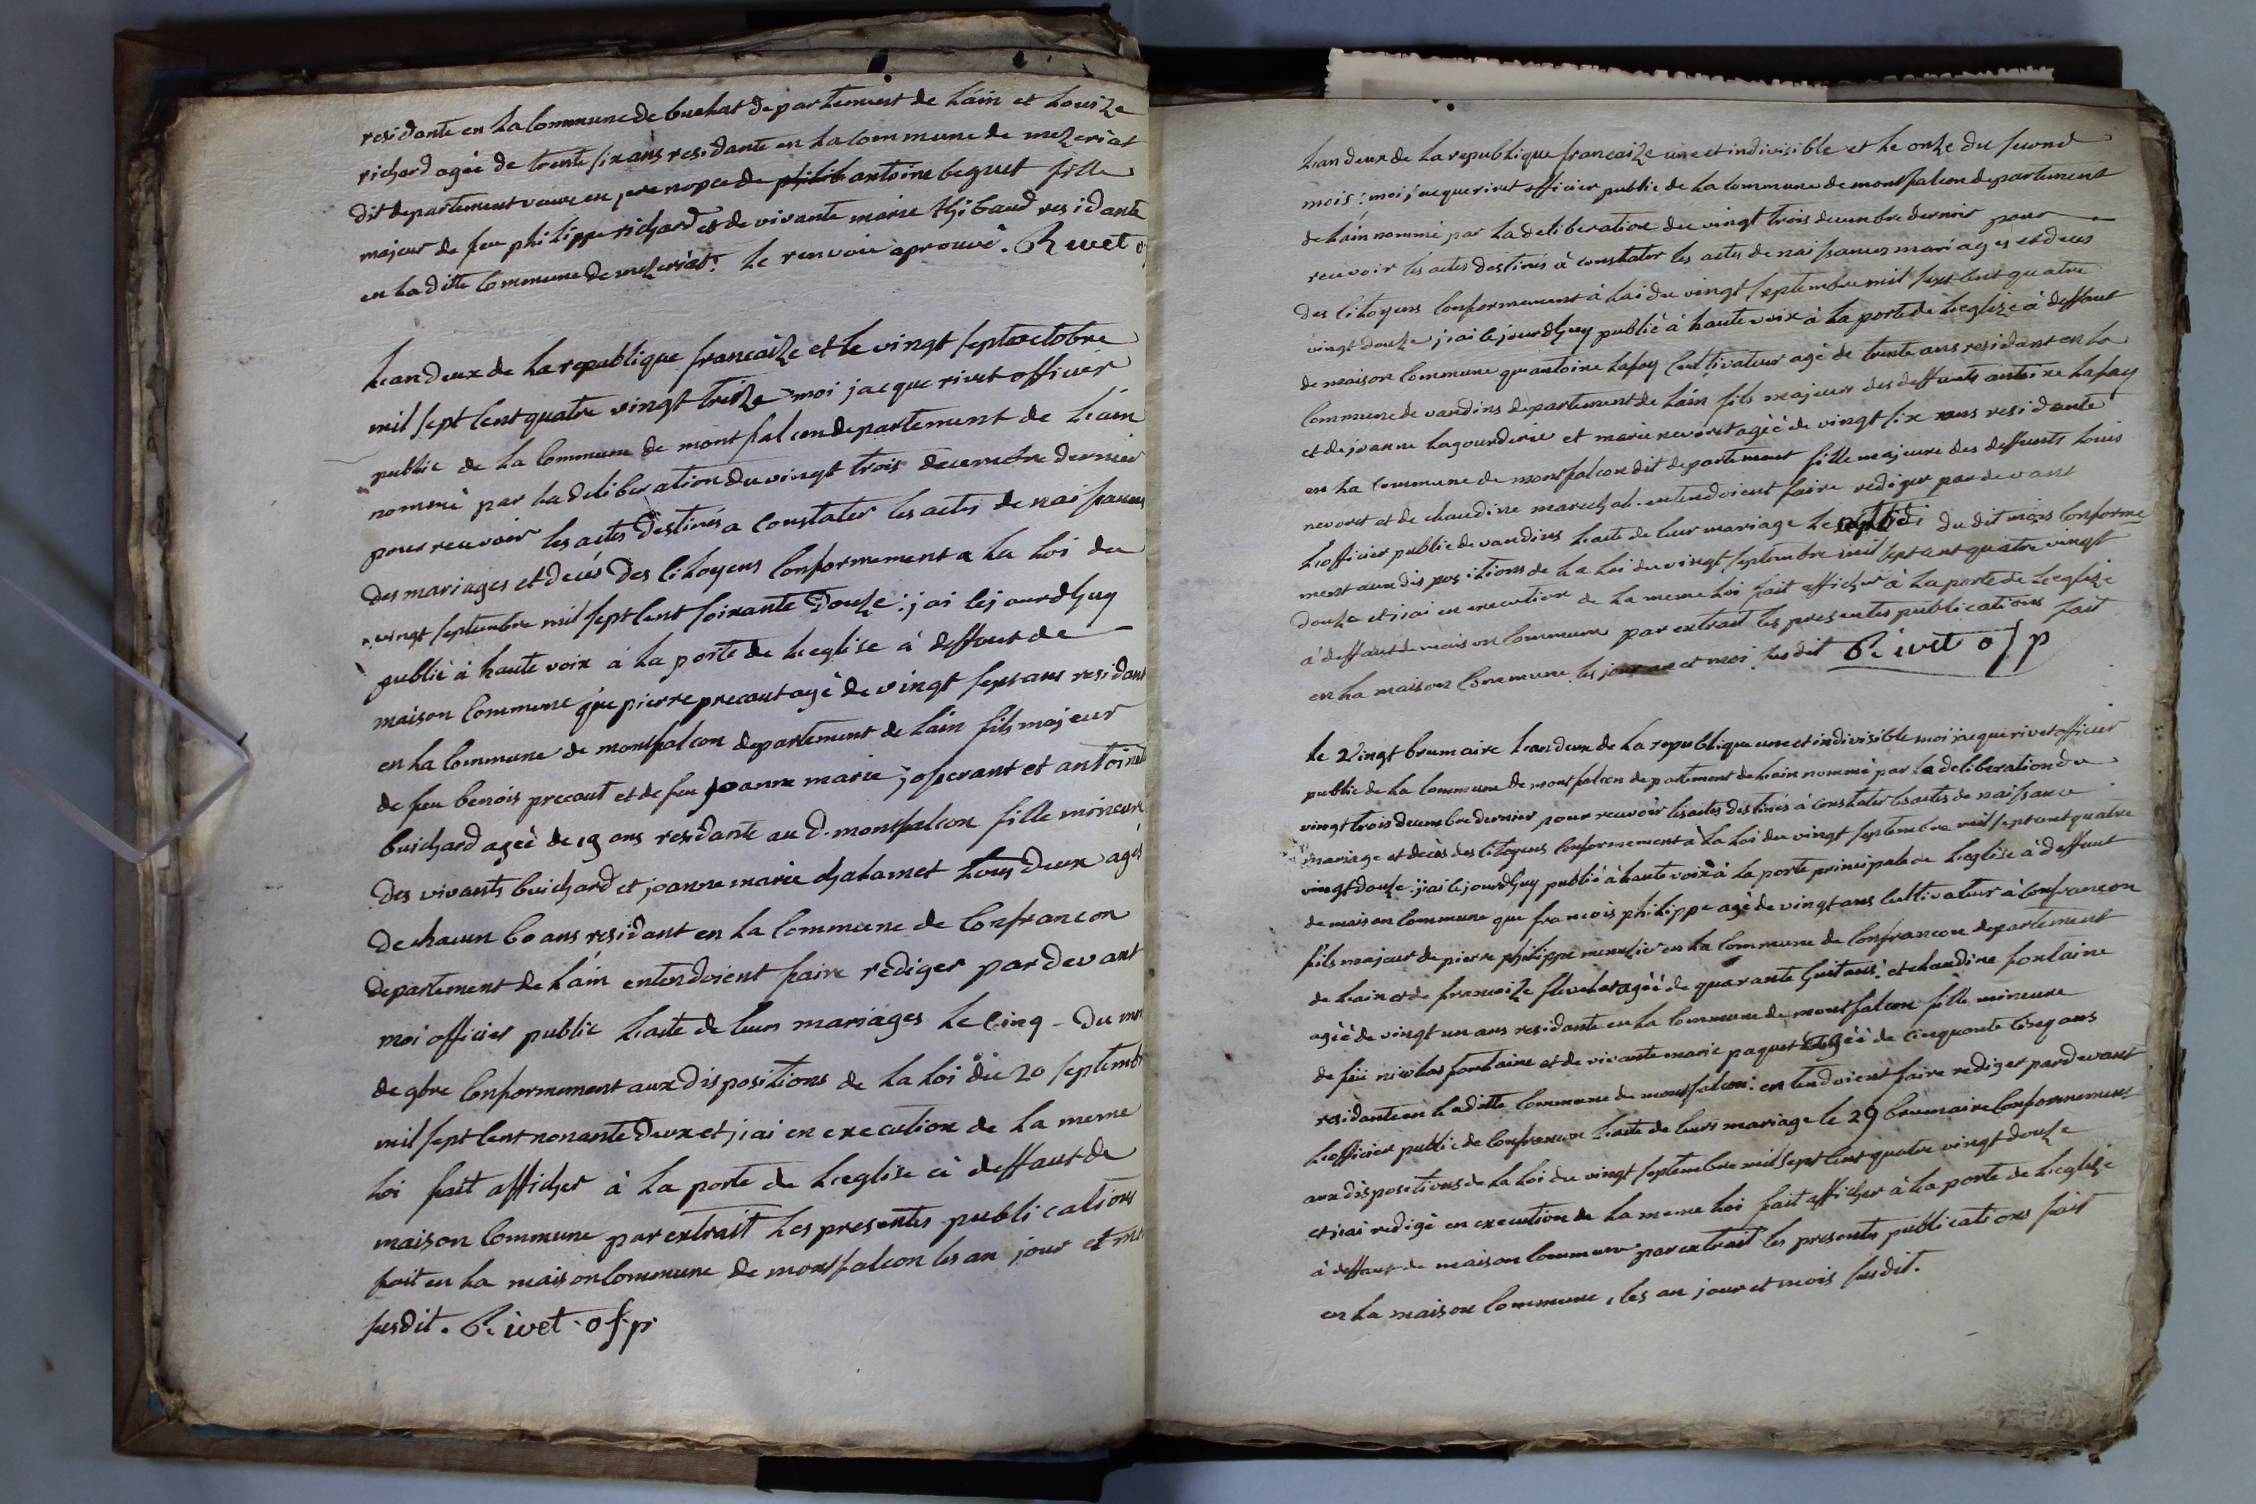 residante en la commune de buchat departement de lain et louize
richard agée de trente six ans residante en la commune de mezeriat
dit departement veuve en nopce de antoine beguet fille
majeur de feu philippe richard et de vivante marie thibaud residante
en la ditte commune de mezeriat. le renvoie aprouvé. Rivet
lan deux de la republique francaize et le vingt sept octobre
mil sept cent quatre vingt treize moi jacque rivet officier
public de la commune de montfalcon departement de lain
nommé par la deliberation du vingt trois decembre dernier
pour recevoir les actes destinés a constater les actes de naissances
des mariages et decés des citoyens conformement a la loi du
vingt septembre mil sept cent soixante douze: jai cejourdhuy
publié à haute voix à la porte de leglise à deffaut de
maison commune que pierre precaut agé de vingt sept ans residant
en la commune de montfalcon departement de lain fils majeur
de feu benois precaut et de feu joanne marie joserant et antoine
buichard agée de 19 ans residante au d. montfalcon fille mineure
des vivants buichard et joanne marie chatamet tous deux agés
de chacun 60 ans residant en la commune de confrancon
departement de lain entendoient faire rediger pardevant
moi officier public lacte de leurs mariages le cinq du
de 9bre conformement aux dispositions de la loi du 20 septembre
mil sept cent nonante deux et jai en execution de la meme
loi fait afficher à la porte de leglise à deffaut de
maison commune par extrait les presentes publications
fait en la maison commune de montfalcon les an jour et
susdit. Rivet of.p.
lan deux de la republique francaize une et indivisible et le onze du second
mois: moi jacque rivet officier public de la commune de montfalcon departement
de lain nommé par la deliberation du vingt trois decembre dernier pour
recevoir les actes destinés à constater les actes de naissances mariages et deces
des citoyens conformement à loi du vingt septembre mil sept cent quatre
vingt douze jai cejourdhuy publié à haute voix à la porte de leglize à deffaut
de maison commune quantoine lafay cultivateur agé de trente ans residant en la
commune de vandins departement de lain fils majeur des deffunts antoine lafay
et de joanne lagourderie et marie nevoret agée de vingt six ans residante
en la commune de montfalcon dit departement fille majeure des deffunts louis
nevoret et de claudine marechal. entendoient faire rediger pardevant
lofficier public de vandins lacte de leur mariage le du dit mois conforme
ment aux dispozitions de la loi du vingt septembre mil sept cent quatre vingt
douze et jai en execution de la meme loi fait afficher à la porte de leglize
à deffaut de maison commune par extrait les presentes publications fait
en la maison commune les et moi susdit Rivet of p
le vingt brumaire lan deux de la republique une et indivisible moi jacque rivet officier
public de la commune de montfalcon departement de lain nommé par la deliberation du
vingt trois decembre dernier pour recevoir les actes destinés à constater les actes de naissance
mariage et decès des citoyens conformement à la loi du vingt septembre mil sept cent quatre
vingt douze: jai cejourdhuy publié à haute voix à la porte principale de leglise à deffaut
de maison commune que francois philippe agé de vingt ans cultivateur à confrancon
fils majeur de pierre philippe menuzier en la commune de confrancon departement
de lain et de francoize agée de quarante huit ans: et claudine fontaine
agée de vingt un ans residante en la commune de montfalcon fille mineure
de feu nicolas fontaine et de vivante marie paquet agée de cinquante cinq ans
residante en laditte commune de montfalcon: entendoient faire rediger pardevant
lofficier public de confrancon lacte de leurs mariage le 29 brumaire conformement
aux dispositions de la loi du vingt septembre mil sept cent quatre vingt douze
et jai redigé en execution de la meme loi fait afficher à la porte de leglize
à deffaut de maison commune par extrait les presentes publications fait
en la maison commune, les an jour et mois susdit.